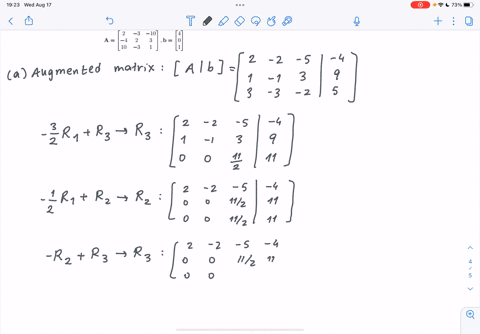 19:23 Wed Aug 17
73%
A = [2 -3 -10; -4 2 3; 10 -3 1], b = [4; 0; 1]
(a) Augmented matrix : [A | b] = [2 -2 -5 | -4; 1 -1 3 | 9; 3 -3 -2 | 5]
-3/2 R1 + R3 → R3 : [2 -2 -5 | -4; 1 -1 3 | 9; 0 0 11/2 | 11]
-1/2 R1 + R2 → R2 : [2 -2 -5 | -4; 0 0 11/2 | 11; 0 0 11/2 | 11]
-R2 + R3 → R3 : [2 -2 -5 -4; 0 0 11/2 11; 0 0
4
5